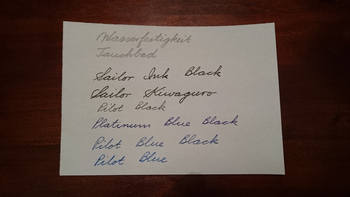 Wasserfestigkeit
Tauchbad
Sailor Ink Black
Sailor Kiwaguro
Pilot Black
Platinum Blue Black
Pilot Blue Black
Pilot Blue